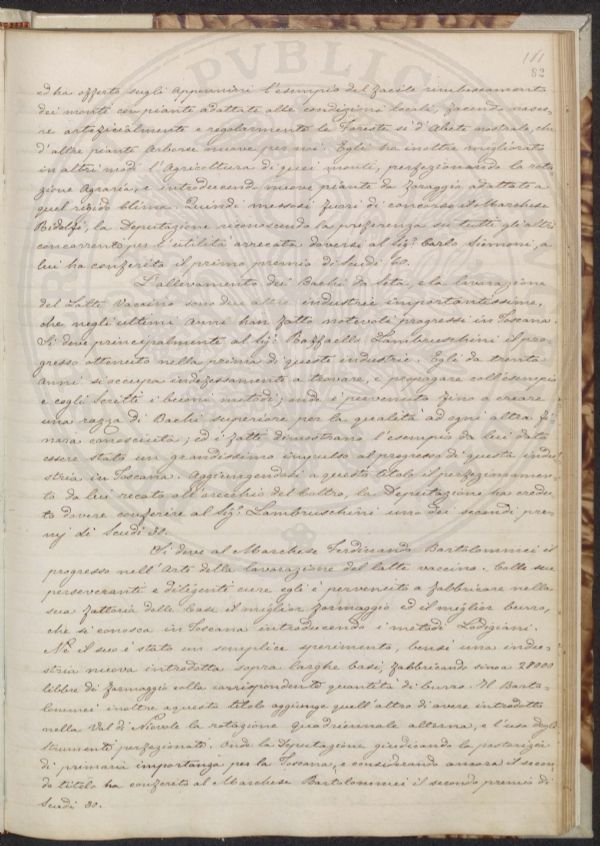 181
82
ed ha offerto sugli Appennini l'esempio del facile rimboscamento
dei monti con piante adattate alle condizioni locali, facendo nasce-
re artificialmente e regolarmente le Foreste sì d'Abete nostrale, che
d'altre piante Arboree nuove per noi. Egli ha inoltre migliorato
in altri modi l'Agricoltura di quei monti, perfezionando la rota
zione Agraria, e introducendo nuove piante da foraggio adattate a
quel rigido clima. Quindi messosi fuori di concorso il Marchese
Ridolfi, la Deputazione riconoscendo la preferenza su tutti gli altri
concorrenti per l'utilità arrecata doversi al Sig.r Carlo Siemoni, a
lui ha conferito il primo premio di Scudi 60.
L'allevamento dei Bachi da Seta, e la lavorazione
del Latte Vaccino sono due altre industrie importantissime,
che negli ultimi anni han fatto notevoli progressi in Toscana.
Si deve principalmente al Sig.r Raffaello Lambruschini il pro-
gresso ottenuto nella prima di queste industrie. Egli da trenta
anni si occupa indefessamente a trovare, e propagare coll'esempio
e cogli Scritti i buoni metodi; onde è pervenuto fino a creare
una razza di Bachi superiore per la qualità ad ogni altra fi-
nora conosciuta; ed i fatti dimostrano l'esempio da lui dato
essere stato un grandissimo impulso al progresso di questa indu-
stria in Toscana. Aggiungendosi a questo titolo il perfezionamen-
to da lui recato all'orecchio del Coltro, la Deputazione ha credu-
to dovere conferire al Sig.r Lambruschini uno dei secondi pre-
mj di Scudi 30.
Si deve al Marchese Ferdinando Bartolommei il
progresso nell'Arte della lavorazione del latte vaccino. Colle sue
perseveranti e diligenti cure egli è pervenuto a fabbricare nella
sua fattoria delle Case il miglior formaggio ed il miglior burro,
che si conosca in Toscana introducendo i metodi Lodigiani.
Nè il suo è stato un semplice sperimento, bensì una indu-
stria nuova introdotta sopra larghe basi, fabbricando sino a 28000
libbre di formaggio colla corrispondente quantità di burro. Il Barto-
lommei inoltre a questo titolo aggiunge quell'altro di avere introdotta
nella Val di Nievole la rotazione quadriennale alterna, e l'uso degli
strumenti perfezionati. Onde la Deputazione giudicando la pastorizia
di primaria importanza per la Toscana, e considerando ancora il secon-
do titolo ha conferito al Marchese Bartolommei il secondo premio di
Scudi 30.